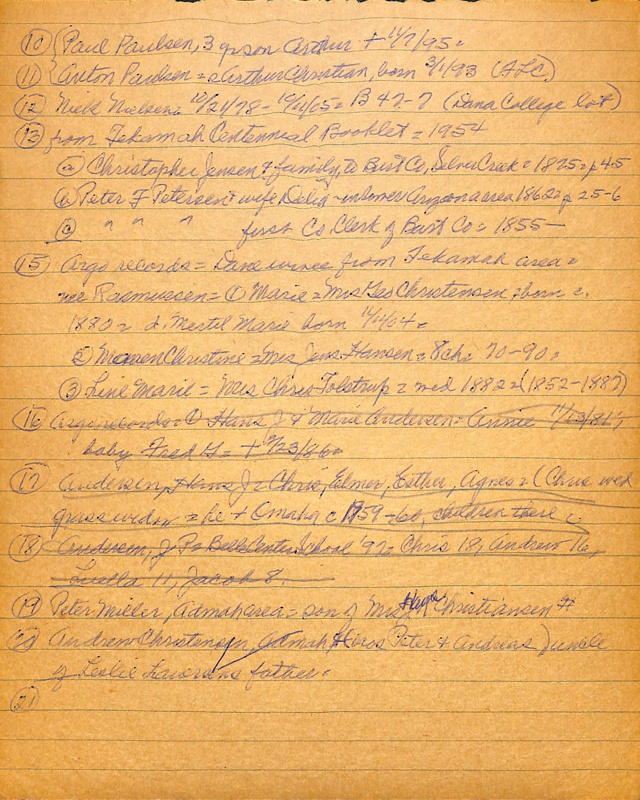 (10) {Paul Paulsen, 3 gpson Arthur + 11/7/95 =
(11) {Anton Paulsen = s Arthur Christian, born 3/1/93 (ALC)
(12) Nick Nielsen = 12/21/78 - 10/11/65 = B 47-7 (Dana College lot)
(13) from Tekamah Centennial Booklet = 1954
(a) Christopher Jensen + family to Burt Co, Silver Creek = 1875 = p 45
b Peter F Petersen + wife Delia - in lower Arizona area 1862 = p 25-6
(c) " " " first Co. Clerk of Burt Co = 1855 -
(15) Argo records = Dane wives from Tekamah area =
nee Rasmussen = (1) Marie = Mrs Geo Christensen = born c.
1880 = d. Mertel Marie born 11/11/04 =
(2) Maren Christine = Mrs Jens Hansen = 8 ch = 70-90 =
(3) Line Marie = Mrs Chris Tolstrup = wed 1882 = (1852-1887)
(16) Argo records = (1) Hans J + Marie Andersen = Annie 11/13/81,
baby Fred G = + 2/23/86 =
(17) Andersen, Hans J = Chris, Elmer, Esther, Agnes = (Chris wed
grass widow = he + Omaha c 1959-60, children there
(18) Andersen, J P = Bell Center School '97 = Chris 18, Andrew 16,
Luella 11, Jacob 8.
(19) Peter Miller, Admah area = son of Mrs Hans Christiansen #
(20) Andrew Christensen, Admah (bros Peter + Andreas) uncle
of Leslie father =
(21)